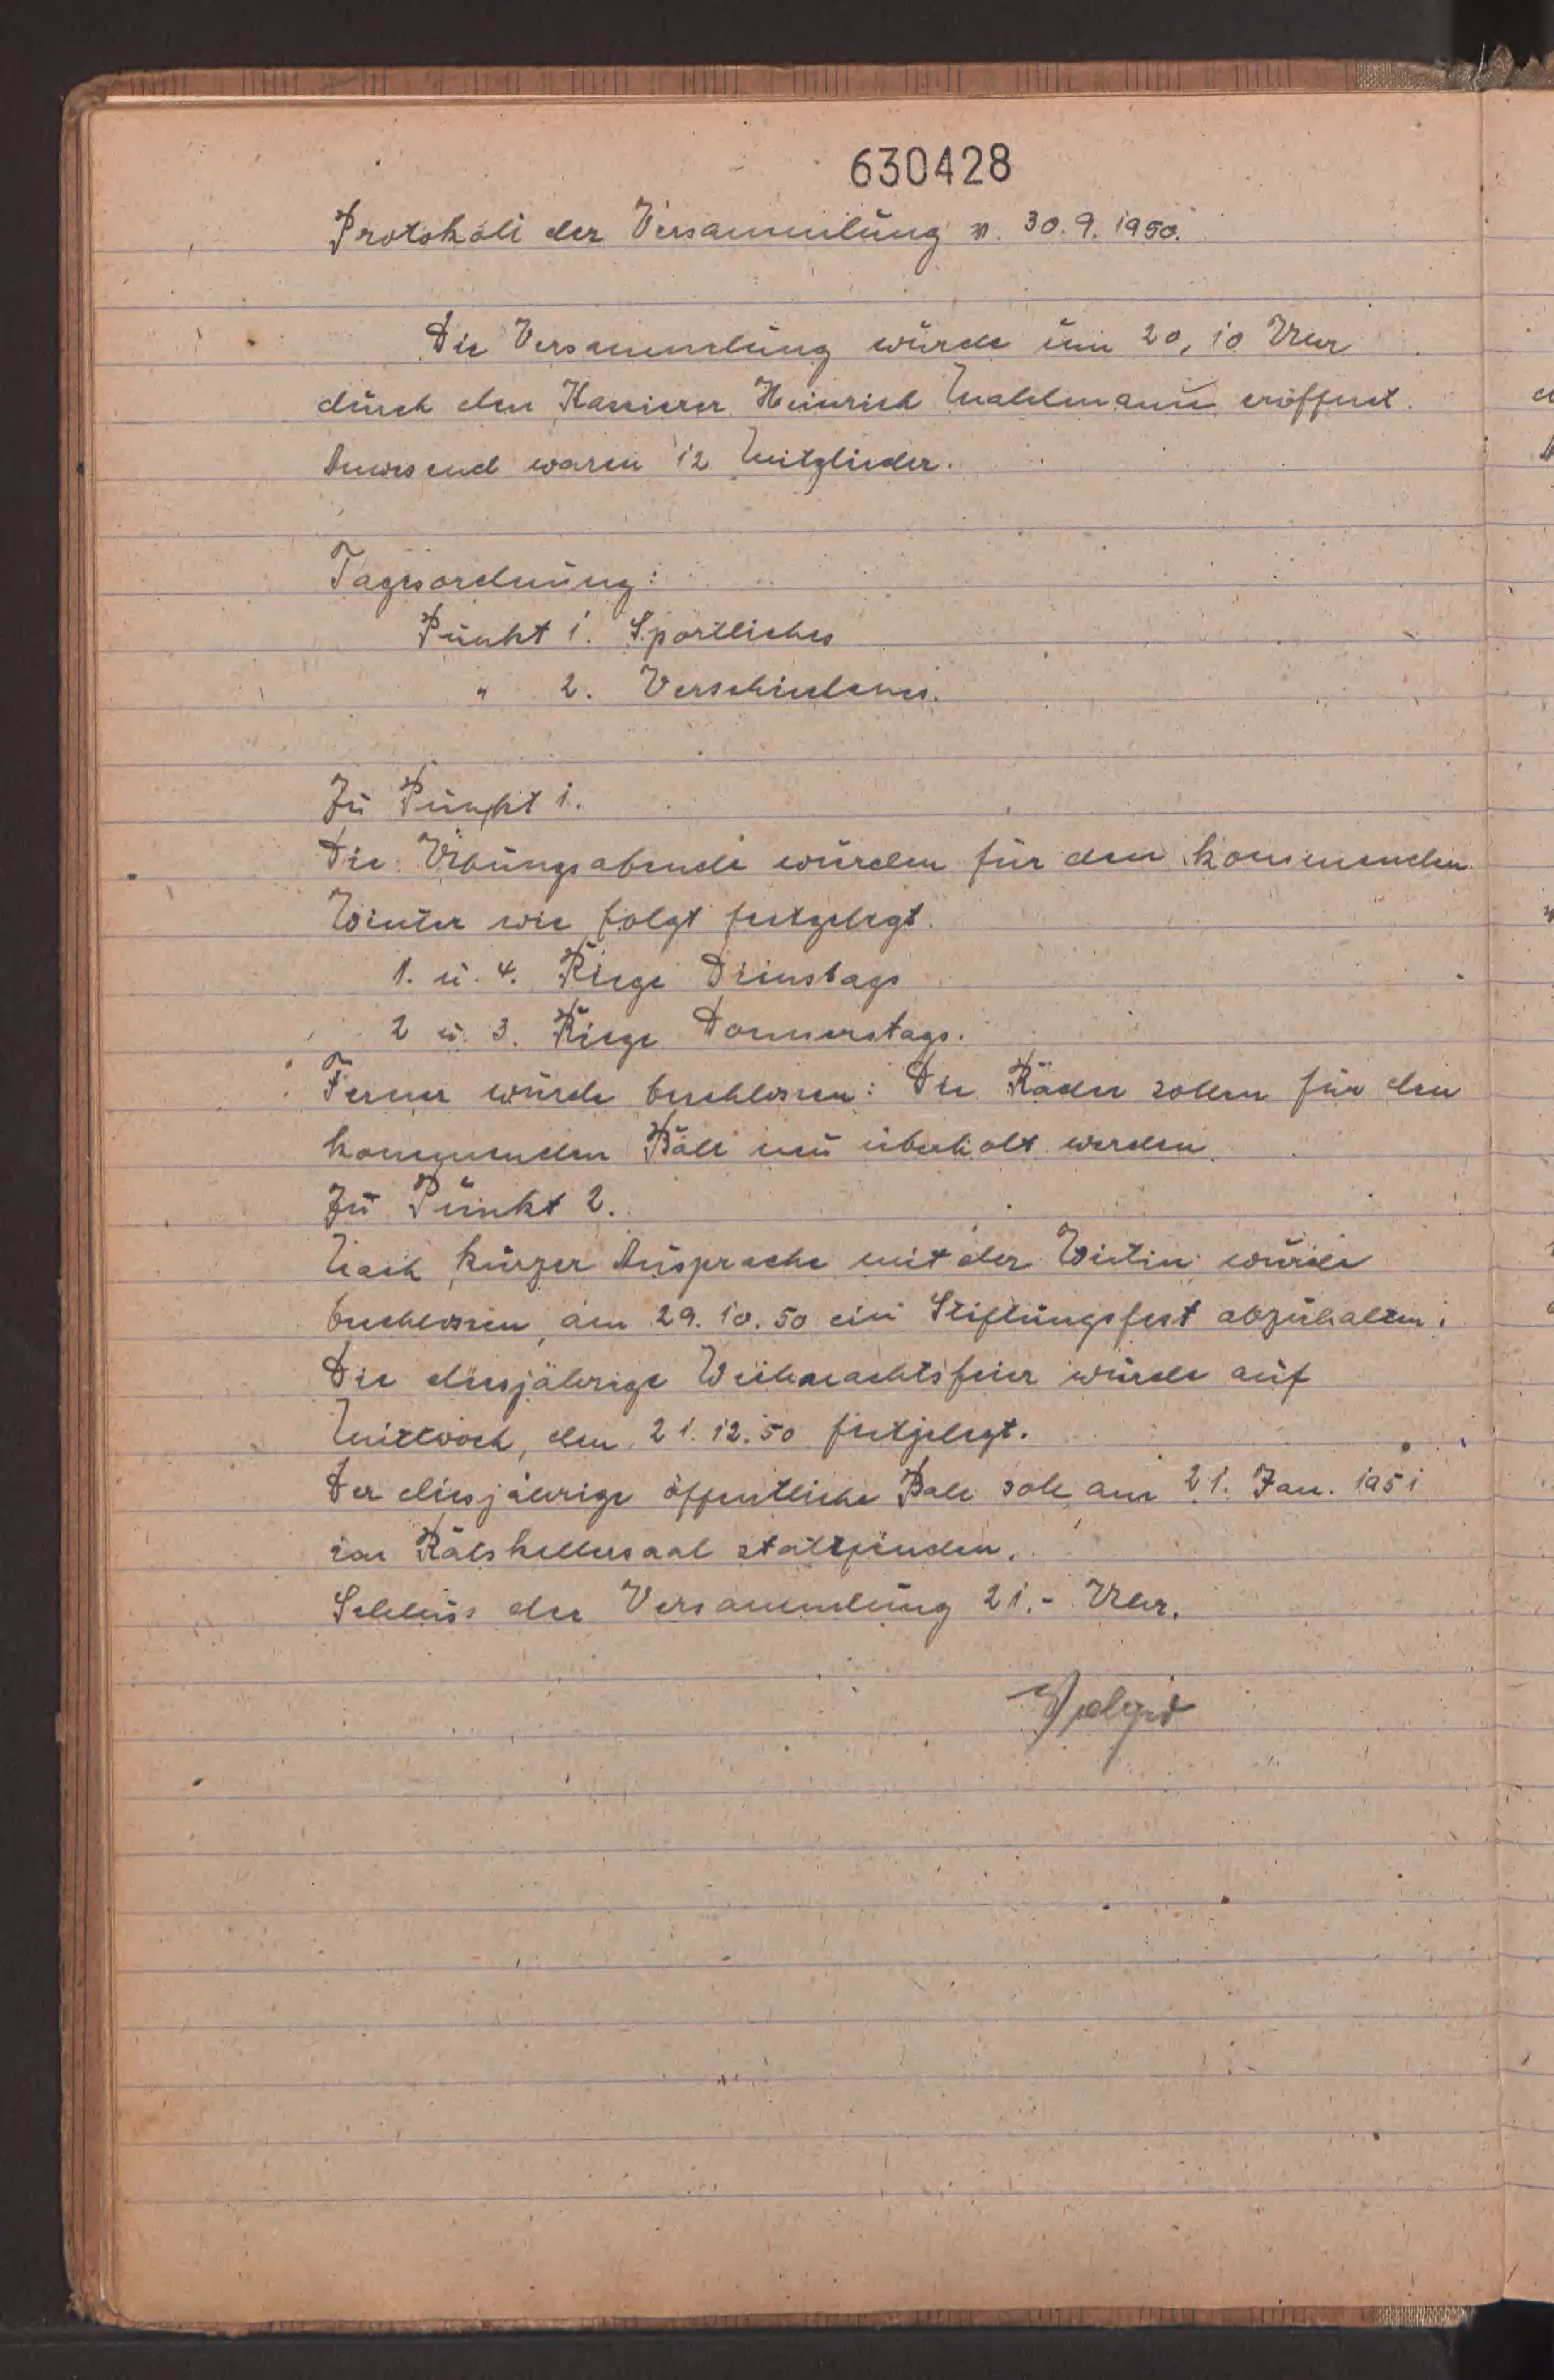 630428
Protokoll der Versammlung v. 30.9.1950.
Die Versammlung wurde um 20,10 Uhr
durch den Kassierer Heinrich Mahlmann eröffnet.
Anwesend waren 12 Mitglieder.
Tagesordnung:
Punkt 1. Sportliches
" 2. Verschiedenes.
Zu Punkt 1.
Die Übungsabende wurden für den kommenden
Winter wie folgt festgelegt.
1. u. 4. Riege Dienstags
2 u. 3. Riege Donnerstags.
Ferner wurde beschlossen: Die Räder sollen für den
kommenden Ball neu überholt werden.
Zu Punkt 2.
Nach kurzer Ausprache mit der Wirtin wurde
beschlossen, am 29.10.50 ein Stiftungsfest abzuhalten.
Die diesjährige Weihnachtsfeier wurde auf
Mittwoch, den 21.12.50 festgelegt.
Der diesjährige öffentliche Ball soll am 21. Jan. 1951
im Ratskellersaal stattfinden.
Schluss der Versammlung 21.- Uhr.